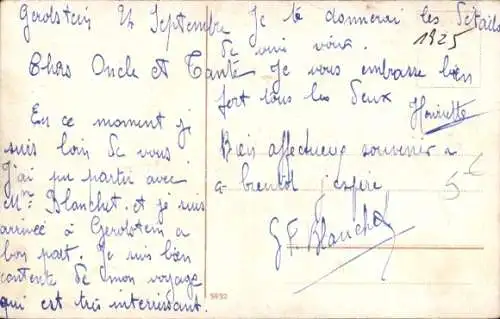 Gerolstein 24 Septembre
Chers Oncle et Tante
En ce moment je
suis loin de vous
J'ai pu partir avec
Mme Blanchet. et je suis
arrivée à Gerolstein a
bon port. Je suis bien
contente de mon voyage
qui est très interrissant.
Je te donnerai les détails
de vive voix.
1925
Je vous embrasse bien
fort tous les deux
Henriette
Bien affectueux souvenir a
a bientôt j'espère
G F. Blanchet
5-€
5932